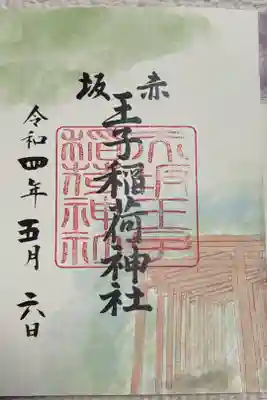 赤坂
王子稲荷神社
令和四年五月六日
稲荷神社